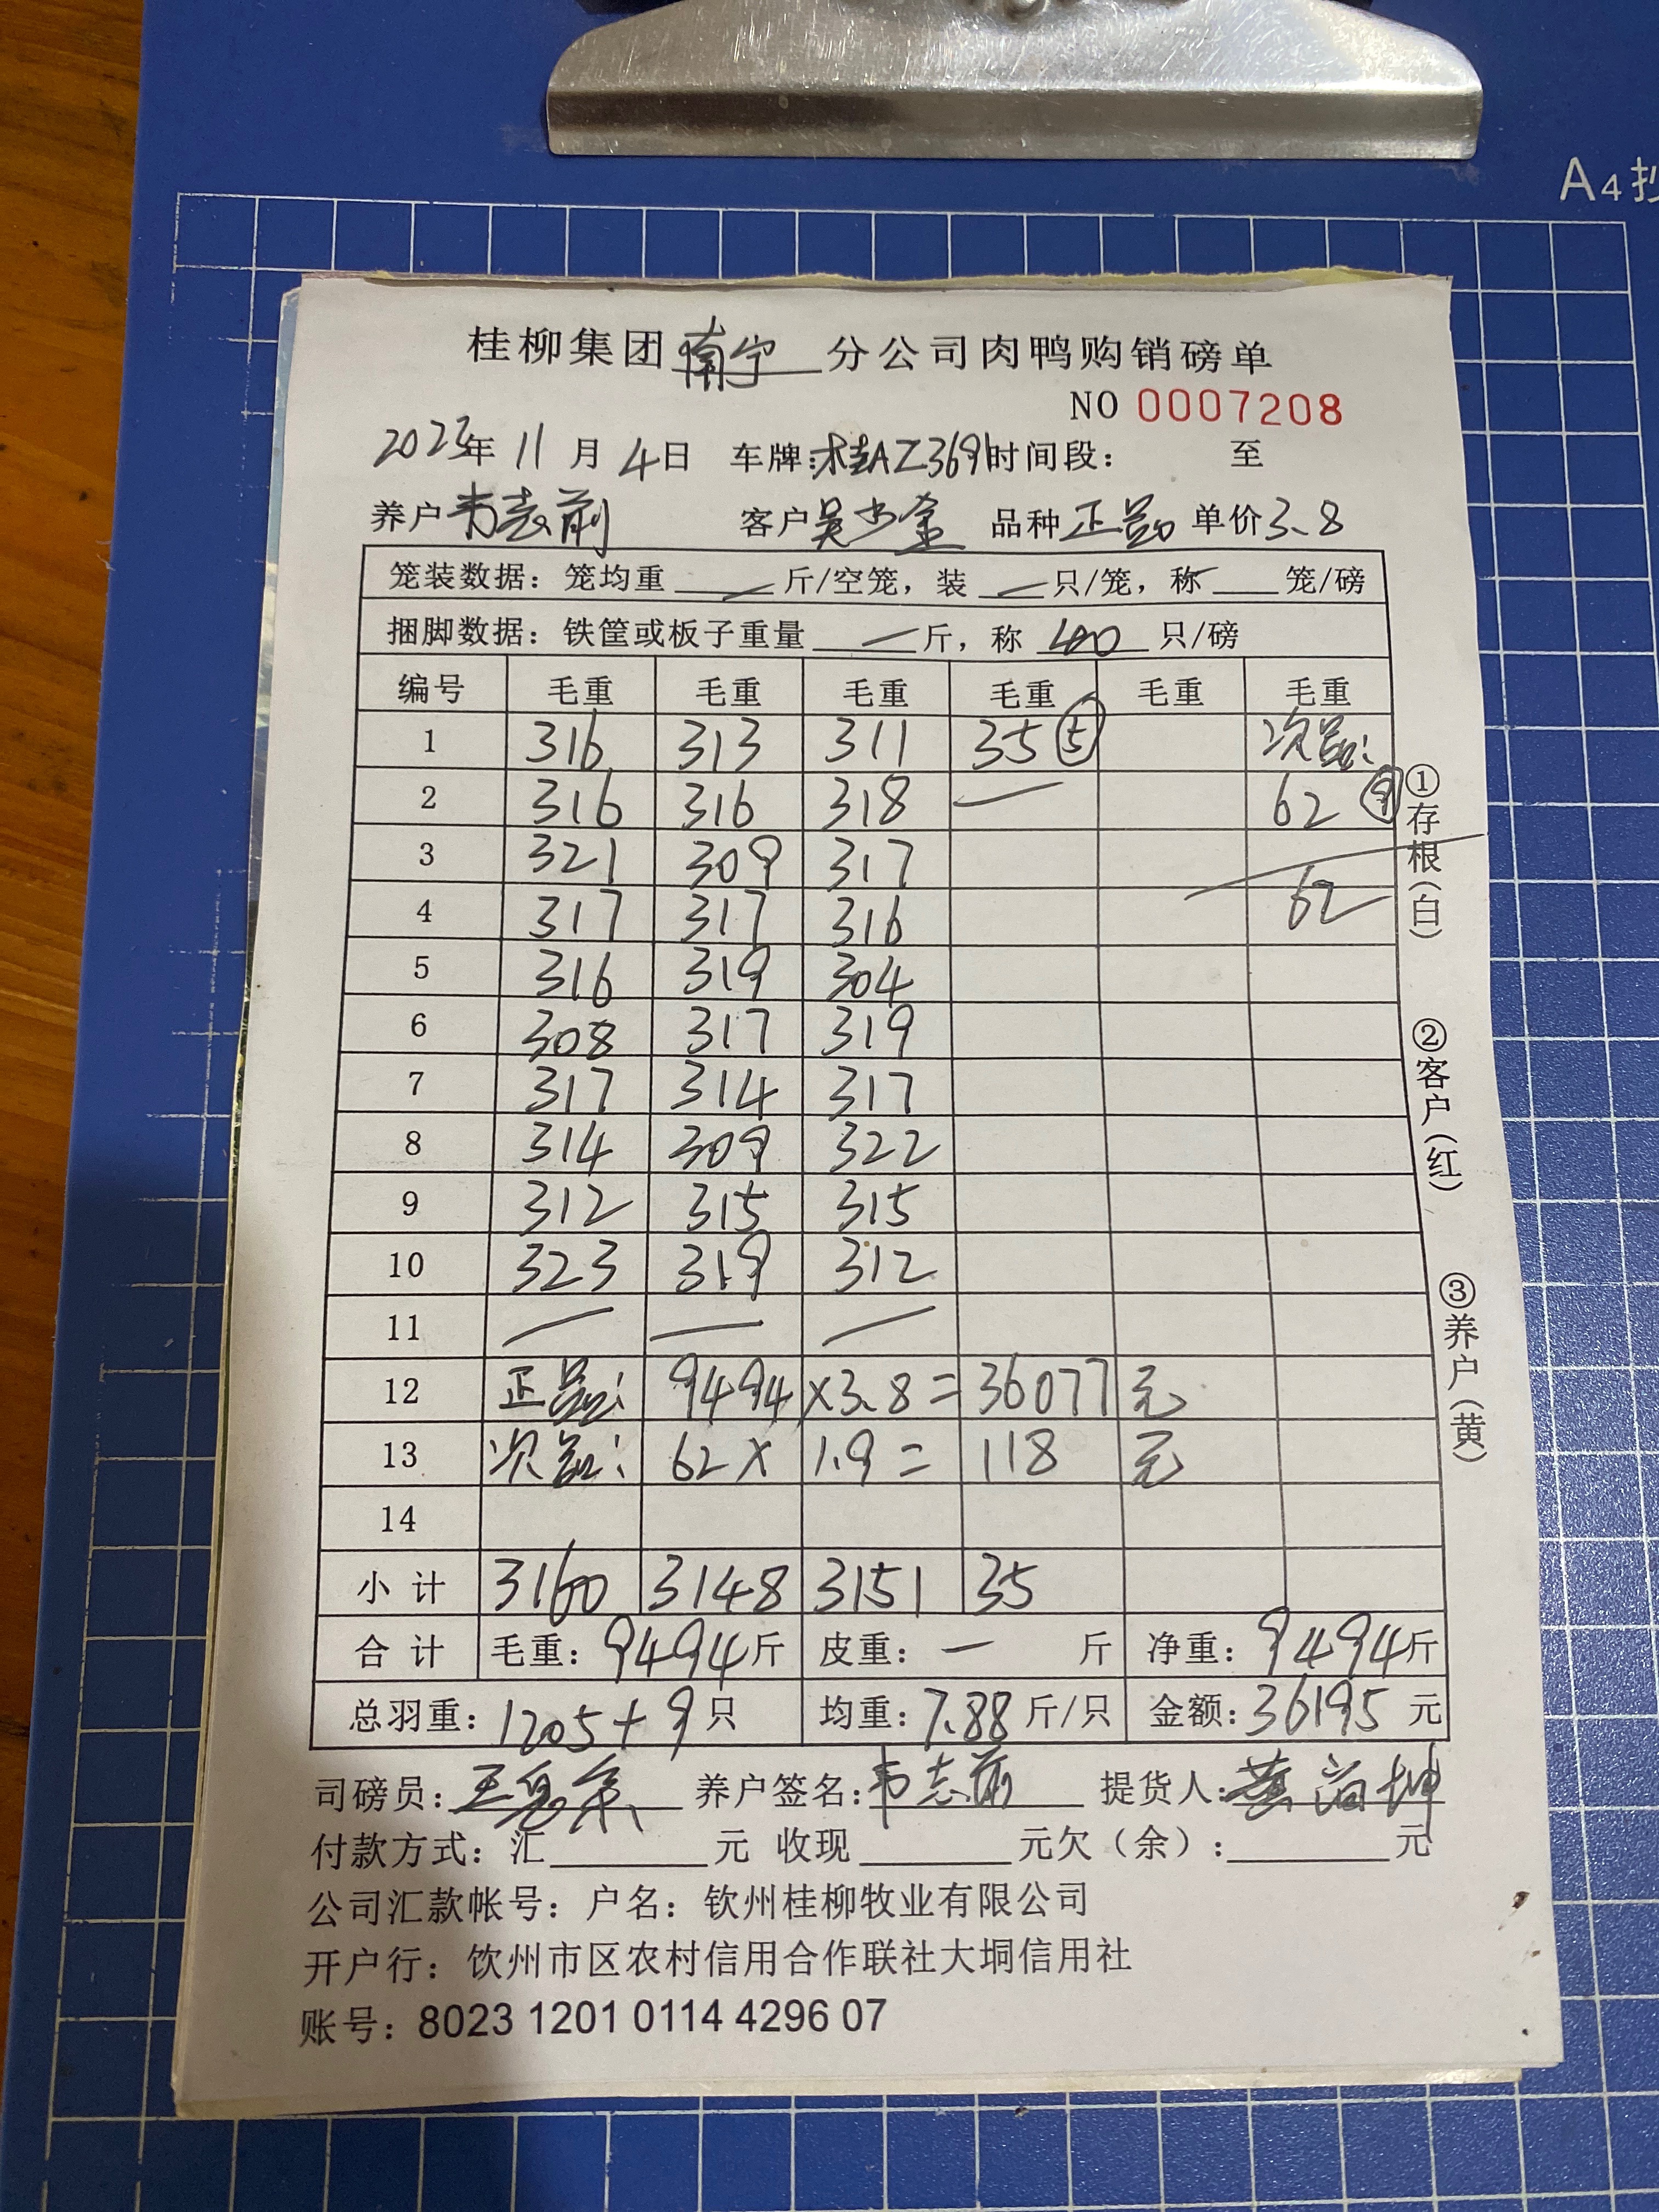 A4抄
桂柳集团南宁分公司肉鸭购销磅单
NO 0007208
2023年 11月 4日 车牌:桂AZ3691 时间段: 至
养户韦志前 客户吴少金 品种正品 单价3.8
笼装数据: 笼均重 — 斤/空笼, 装 — 只/笼, 称 — 笼/磅
捆脚数据: 铁筐或板子重量 — 斤, 称 40 只/磅
编号 毛重 毛重 毛重 毛重 毛重 毛重
1 316 313 311 35 ⑤ 次品:
2 316 316 318 — 62 ⑨
3 321 309 317
4 317 317 316 62
5 316 319 304
6 308 317 319
7 317 314 317
8 314 309 322
9 312 315 315
10 323 319 312
11 — — —
12 正品: 9494 ×3.8 = 36077 元
13 次品: 62 × 1.9 = 118 元
14
小计 3160 3148 3151 35
合计 毛重: 9494斤 皮重: — 斤 净重: 9494斤
总羽重: 1205+9只 均重: 7.88斤/只 金额: 36195 元
司磅员: 养户签名: 韦志前 提货人: 黄
付款方式: 汇 元 收现 元欠(余): 元
公司汇款帐号: 户名: 钦州桂柳牧业有限公司
开户行: 钦州市区农村信用合作联社大垌信用社
账号: 8023 1201 0114 4296 07
①存根(白)
②客户(红)
③养户(黄)